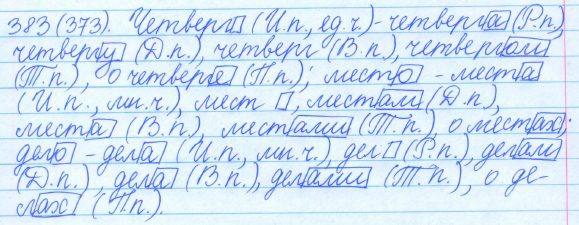 383 (373). Четверг (И.п., ед.ч.) - четверга (Р.п.)
четвергу (Д.п.), четверг (В.п.), четвергом
(Т.п.), о четверге (П.п.); место - места
(И.п., мн.ч.), мест , местам (Д.п.),
места (В.п.), местами (Т.п.), о местах;
дело - дела (И.п., мн.ч.), дел (Р.п.), делам
(Д.п.) дела (В.п.), делами (Т.п.), о де-
лах (П.п.).